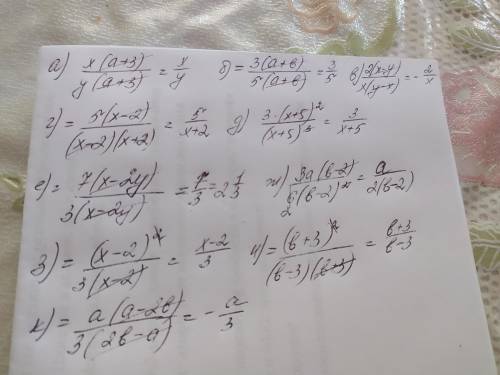 а) x(a+3)/y(a+3) = x/y б) = 3(a+b)/5(a+b) = 3/5 в) 2(x-y)/x(y-x) = -2/x
г) = 5(x-2)/(x-2)(x+2) = 5/x+2 д) 3·(x+5)²/(x+5)³ = 3/x+5
е) = 7(x-2y)/3(x-2y) = 7/3 = 2 1/3 ж) = 3a(b-2)/6(b-2)² = a/2(b-2)
з) = (x-2)²/3(x-2) = x-2/3 и) = (b+3)²/(b-3)(b+3) = b+3/b-3
к) = a(a-2b)/3(2b-a) = -a/3